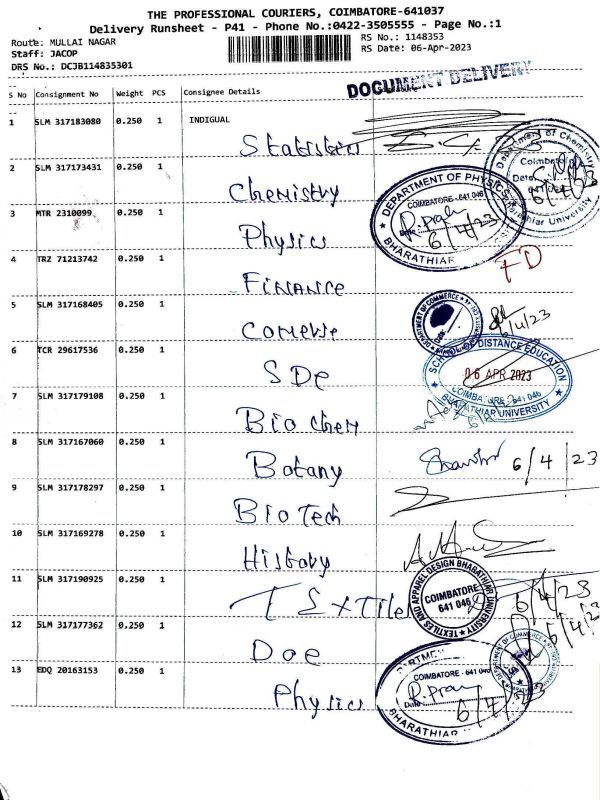 THE PROFESSIONAL COURIERS, COIMBATORE-641037
Delivery Runsheet - P41 - Phone No.:0422-3505555 - Page No.:1
Route: MULLAI NAGAR
RS No.: 1148353
Staff: JACOP
RS Date: 06-Apr-2023
DRS No.: DCJB114835301
DOCUMENT DELIVERY
S No Consignment No Weight PCS Consignee Details
1 SLM 317183080 0.250 1 INDIGUAL
Department of Chemistry
Coimbatore
Bharathiar University
2 SLM 317173431 0.250 1
Chemistry
DEPARTMENT OF PHYSICS
COIMBATORE - 641 046
Date
6/4/23
BHARATHIAR
3 MTR 2310099 0.250 1
Physics
4 TRZ 71213742 0.250 1
FD
FINANCE
5 SLM 317168405 0.250 1
DEPARTMENT OF COMMERCE
6/4/23
6 TCR 29617536 0.250 1
SDE
SCHOOL OF DISTANCE EDUCATION
06 APR 2023
COIMBATORE - 641 046
BHARATHIAR UNIVERSITY
7 SLM 317179108 0.250 1
Bio chem
8 SLM 317167060 0.250 1
Botany
6/4/23
9 SLM 317178297 0.250 1
Bio Tech
10 SLM 317169278 0.250 1
History
11 SLM 317190925 0.250 1
TEXTILE
TEXTILES AND APPAREL DESIGN BHARATHIAR UNIVERSITY
COIMBATORE
641 046
6/4/23
12 SLM 317177362 0.250 1
Doe
6/4/23
13 EDQ 20163153 0.250 1
Physics
COIMBATORE - 641 046
Date
6/4/23
BHARATHIAR